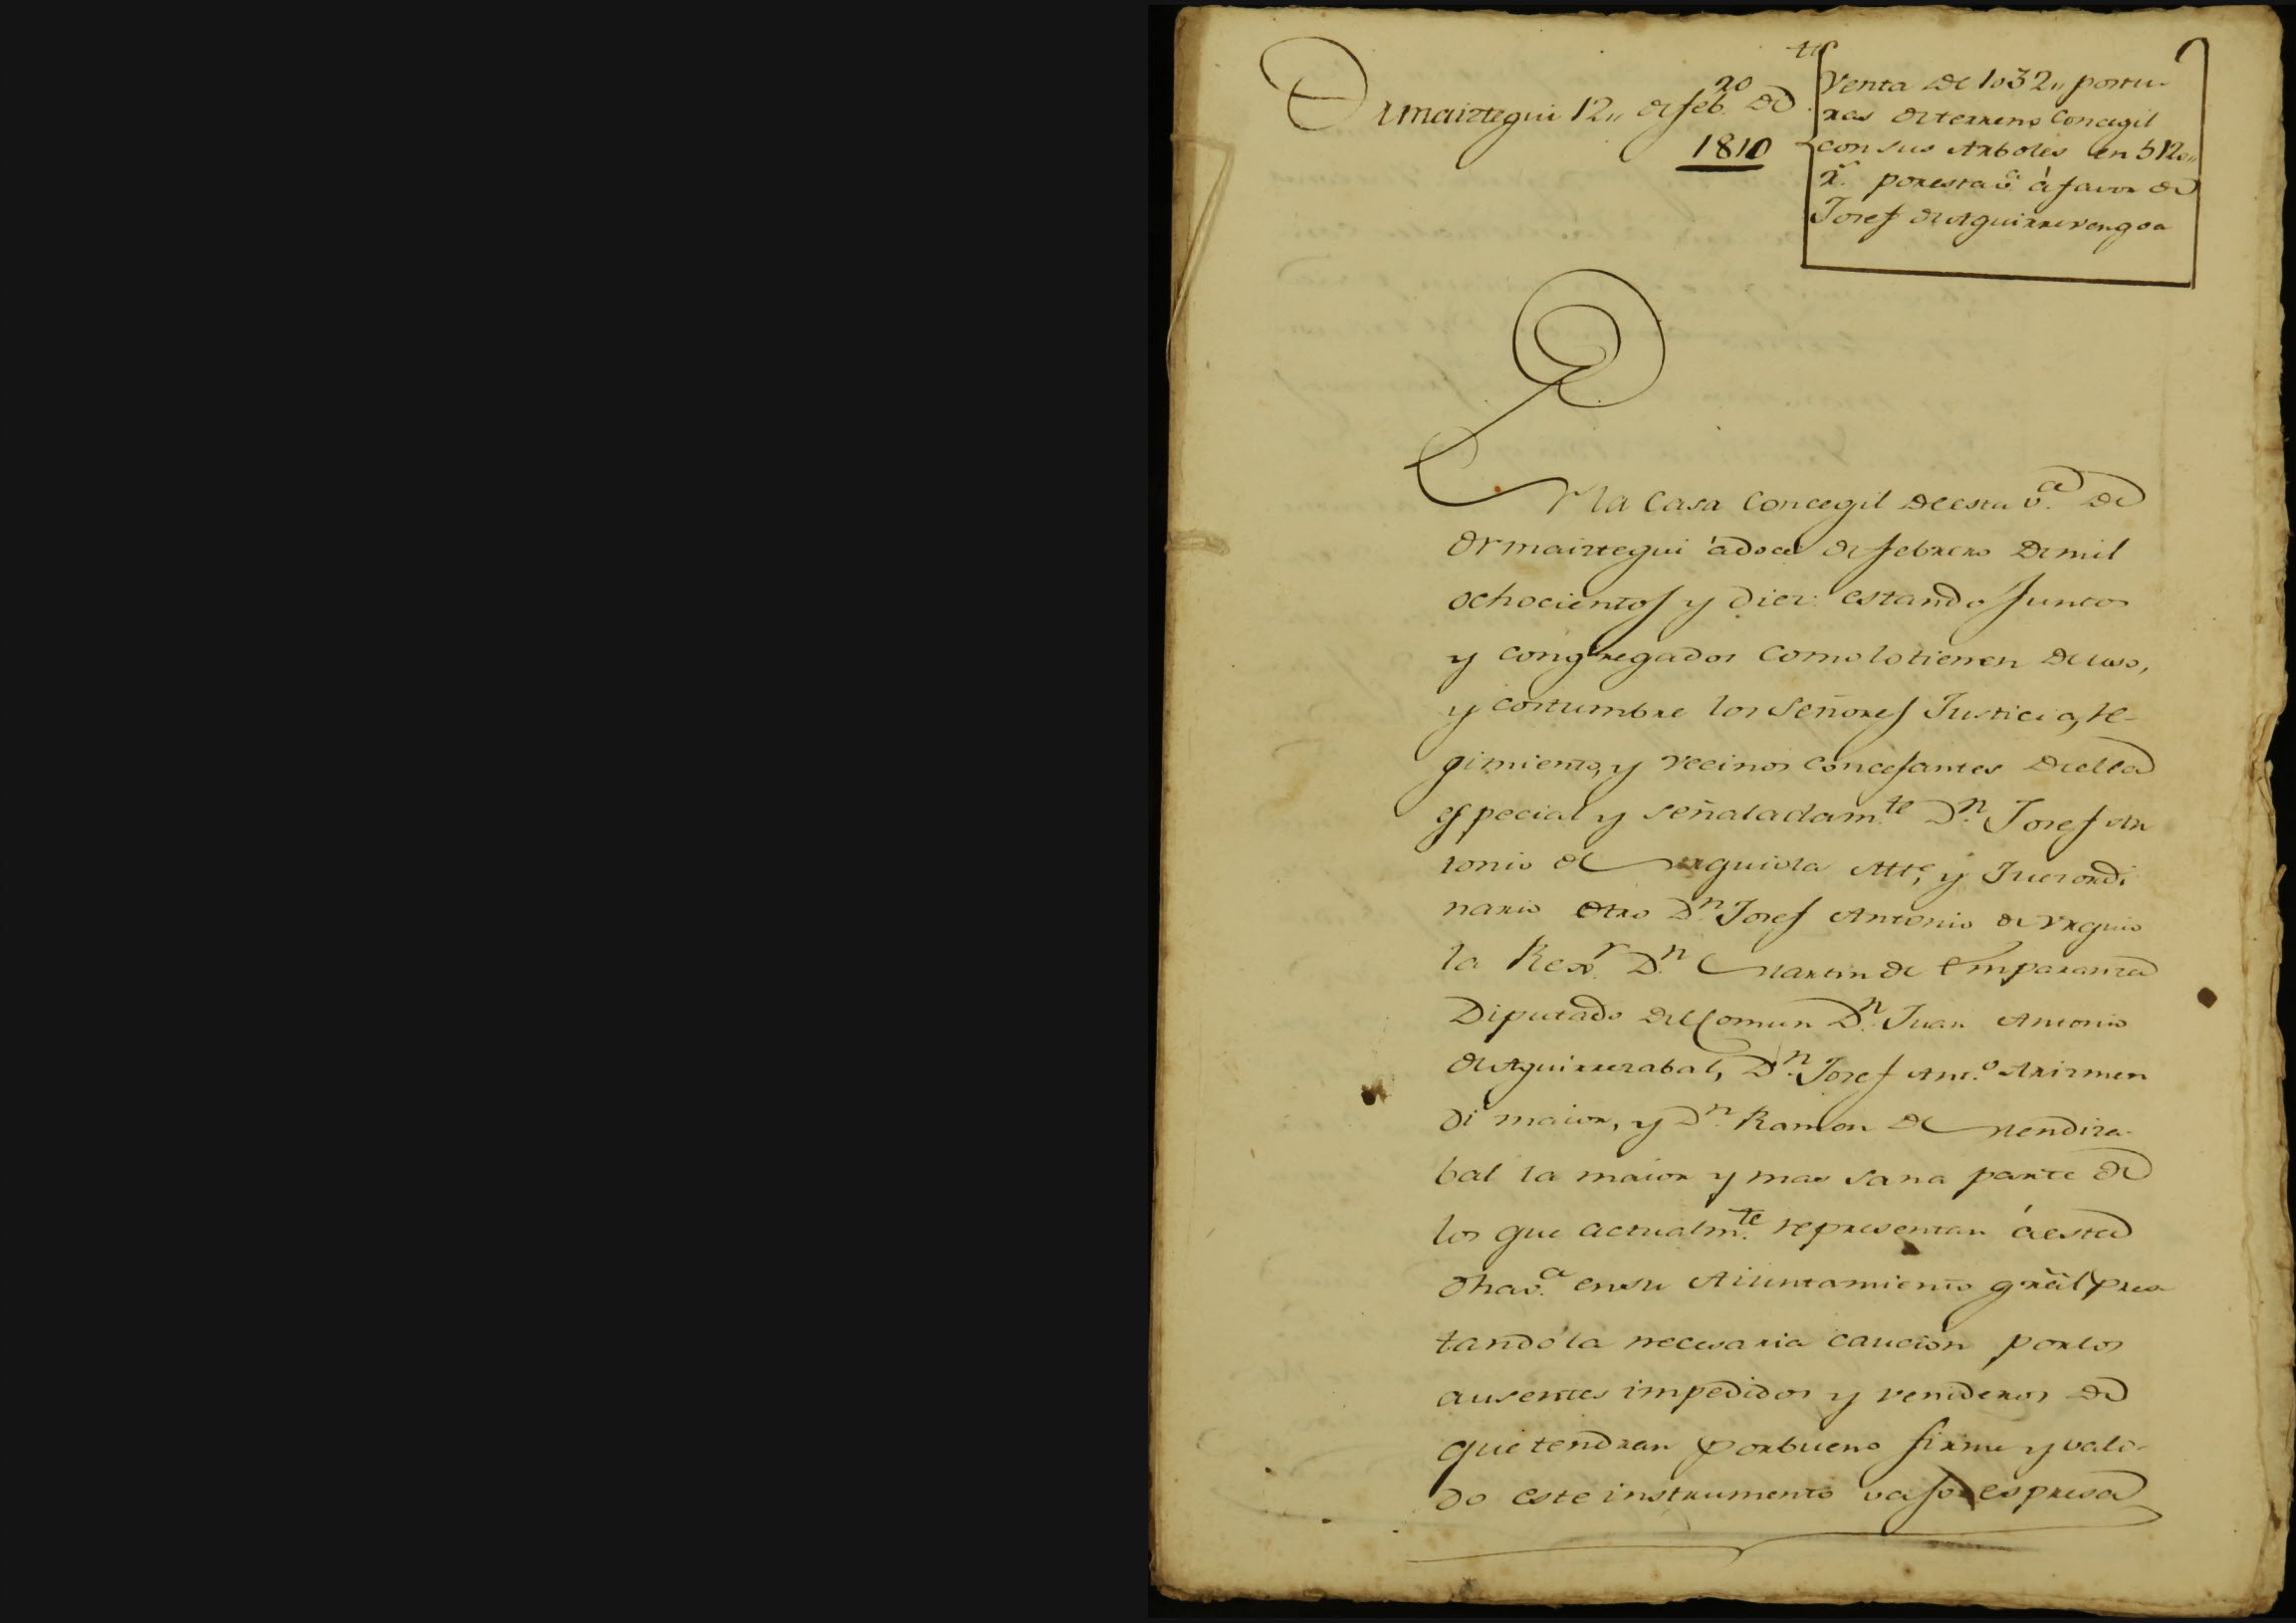 Ormaiztegui 12,, de feb.ro de
1810
Venta de 1032,, postu-
ras de terreno Concegil
con sus Arboles en 5120,,
r.s por esta v.a á favor de
Josef de Aguirrevengoa
En la Casa Concegil de esta v.a de
Ormaiztegui á doce de febrero de mil
ochocientos y diez: estando Juntos
y congregados como lo tienen de uso,
y costumbre los Señores Justicia, Re-
gimiento, y vecinos concejantes de ella
especial y señaladam.te D.n Josef An
tonio de Urquiola Alc.e y Juez ordi
nario Otro D.n Josef Antonio de Urquio
la Rex.r D.n Martin de Emparanza
Diputado del Comun D.n Juan Antonio
de Aguirrezabal, D.n Josef Ant.o Arizmen
di maior, y D.n Ramon de Mendiza-
bal la maior y mas sana parte de
los que actualm.te representan á esta
dha v.a en su Aiuntamiento gral pres
tando la necesaria caucion por los
ausentes impedidos y venideros de
que tendran por bueno firme y vale-
do este instrumento vajo espresa